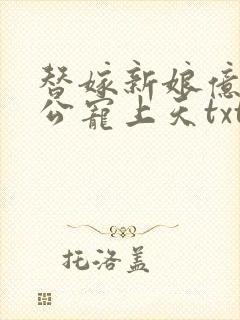 替嫁新娘亿
公宠上天txt
托洛盖